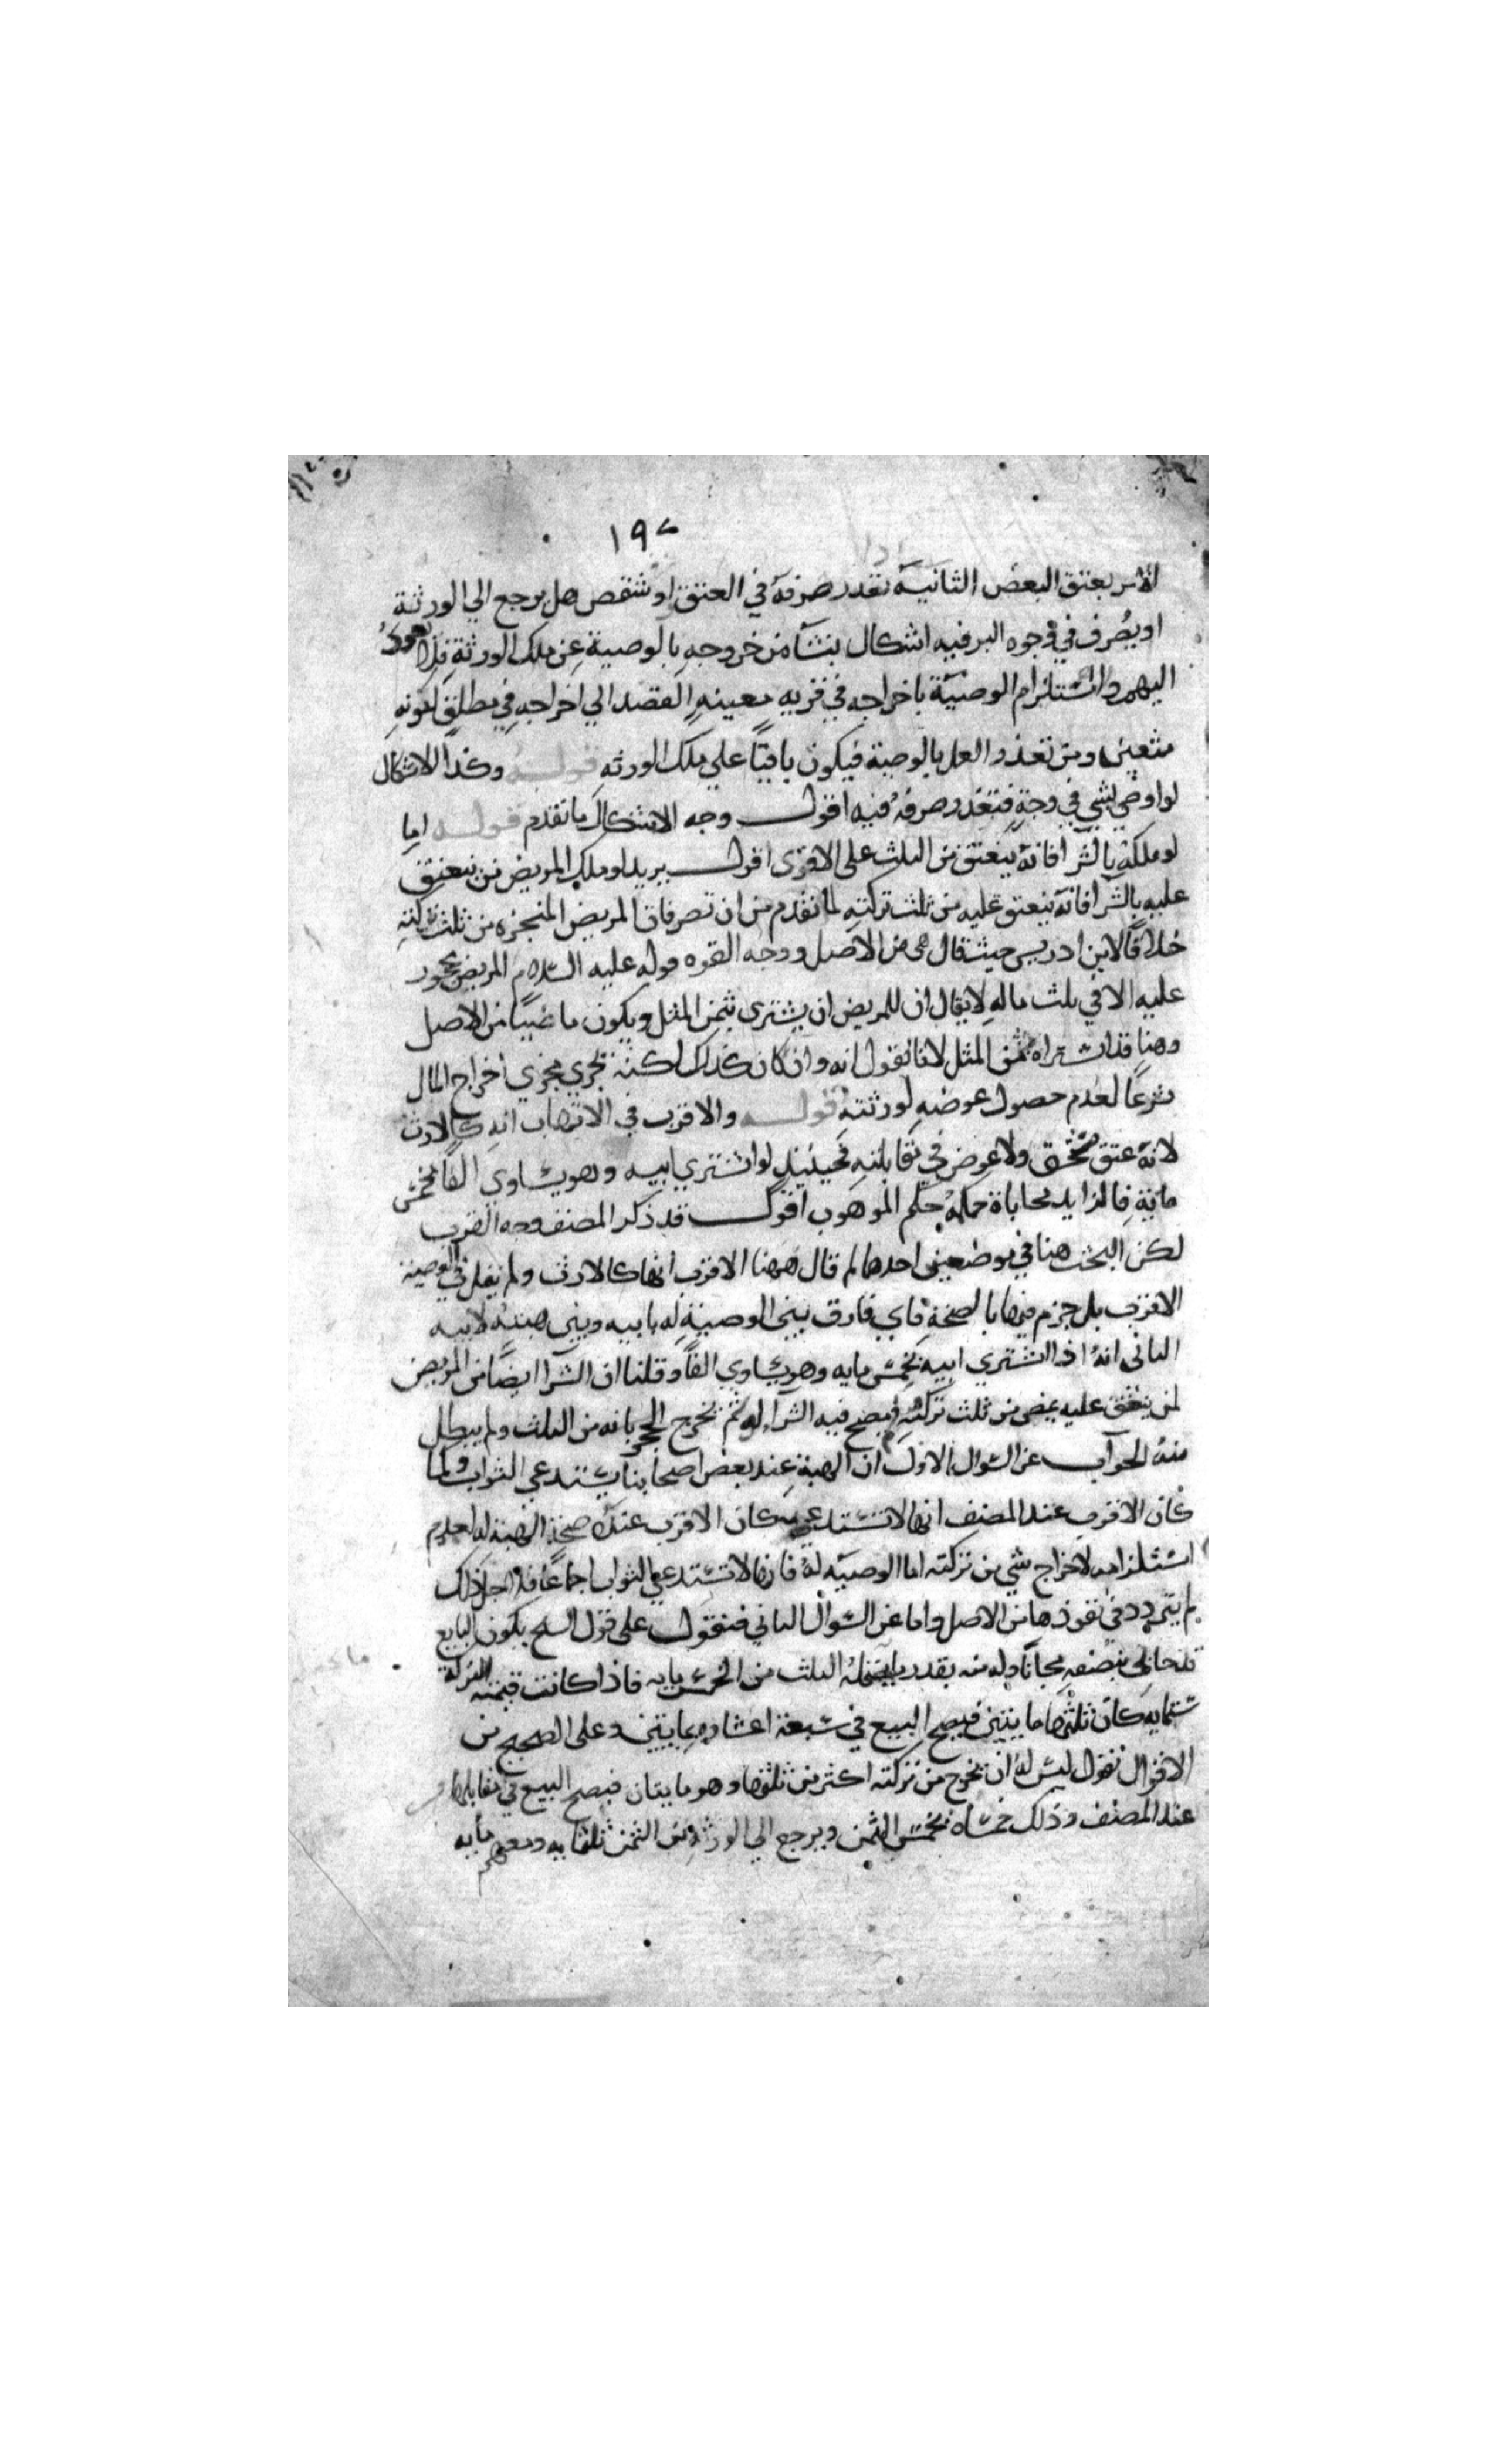 ١٩٢
الامر بعتق البعض الثانية تعذر صرفه في العتق او شقص هل يرجع الي الورثة
او يصرف في وجوه البر فيه اشكال ينشأ من خروجه بالوصية عن ملك الورثة فلا يعود
اليهم واستلزام الوصية باخراجه في قربه معينه القصد الي اخراجه في مطلق
ومن تعذر العمل بالوصية فيكون باقيا علي ملك الورثه قوله وكذا الاشكال
لو اوصي بشي في وجه فتعذر صرفه فيه اقول وجه الاشكال ما تقدم قوله اما
لو ملكه بالشرا فانه ينعتق من الثلث على الاقوى اقول يريد لو ملك المريض من ينعتق
عليه بالشرا فانه ينعتق عليه من ثلث تركته لما تقدم من ان تصرفات المريض المنجزه من ثلث تركته
خلافا لابن ادريس حيث قال هي من الاصل ووجه القوه قوله عليه السلام المريض محجور
عليه الا في ثلث ماله لا يقال ان للمريض ان يشتري بثمن المثل ويكون ماضيا من الاصل
وهنا قد اشتراه بثمن المثل لانا نقول انه وان كان كذلك لكنه يجري مجري اخراج المال
شرعا لعدم حصول عوضه لورثته قوله والاقرب في الاتهاب انه كالارث
لانه عتق مستحق ولا عوض في مقابلته فحينئذ لو اشتري ابيه وهو يساوي الفا بخمس
مائة فالزايد محاباة حكمه حكم الموهوب اقول قد ذكر المصنف وجه القرب
لكن البحث هنا في موضعين احدهما لم قال ههنا الاقرب انها كالارث ولم يقل في الوصية
الاقرب بل جزم فيها بالصحة فاي فارق بين الوصية له بابيه وبين هبته لابيه
الثاني انه اذا اشتري ابيه بخمس مايه وهو يساوي الفا وقلنا ان الشرا ايضا من المريض
لمن ينعتق عليه يمضي من ثلث تركته فيصح فيه الشرا لم يخرج الحجر بانه من الثلث ولم يبطل
منه الجواب عن السوال الاول ان الهبة عند بعض اصحابنا يستدعي الثواب ولما
كان الاقرب عند المصنف انها لا تستدعيه كان الاقرب عنده صحة الهبة له لعدم
استلزامه لاخراج شي من تركته اما الوصيه له فانها لا تستدعي الثواب اجماعا فلاجل ذلك
لم يتردد في نفوذها من الاصل واما عن السوال الثاني فنقول على قول الشيخ يكون البايع
قد حابي بنصفه مجانا وله منه بقدر ما يحتمله الثلث من الخمس مايه فاذا كانت قيمته التركة
ستمايه كان ثلثها مايتين فيصح البيع في سبعة اعشاره بمايتين وعلى الصحيح من
الاقوال نقول ليس له ان يخرج من تركته اكثر من ثلثها وهو مايتان فيصح البيع في مقابلها
عند المصنف وذلك خمساه بخمسي الثمن ويرجع الي الورثه من الثمن ثلثمايه ومعهم مايه